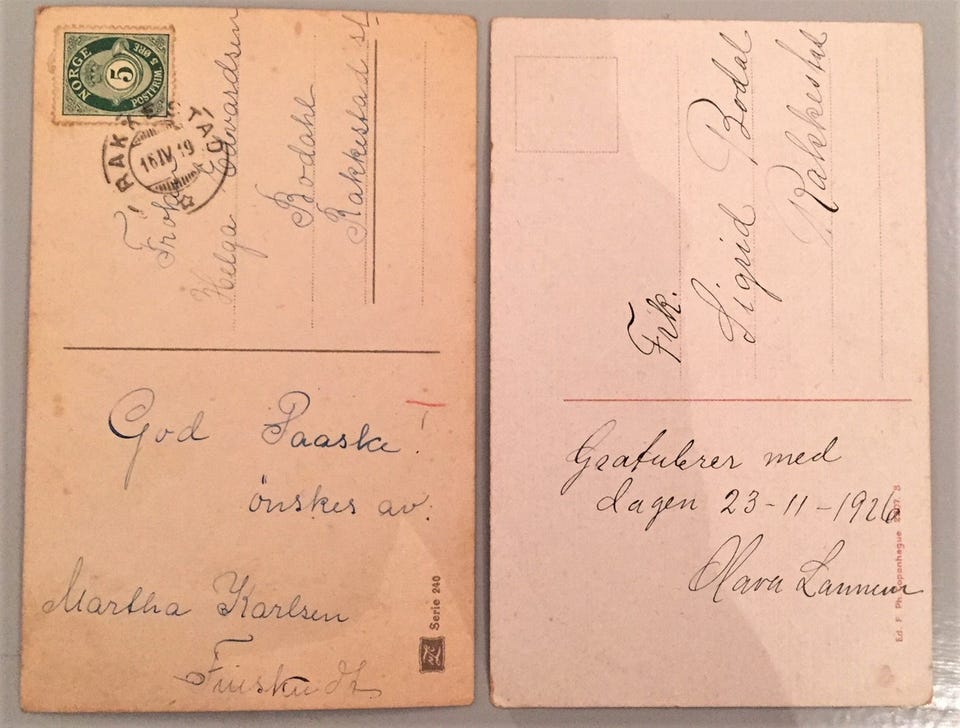 NORGE
5
POSTFRIM. 5 ØRE
RAKKESTAD
16 IV 19
Frøken
Helga Edvardsen
Bodahl
Rakkestad st
God Paaske!
ønskes av:
Martha Karlsen
Serie 240
Frk.
Sigrid Bodal
Rakkestad
Gratulerer med
dagen 23-11-1926
Olava
Ed. F. Ph. Copenhague